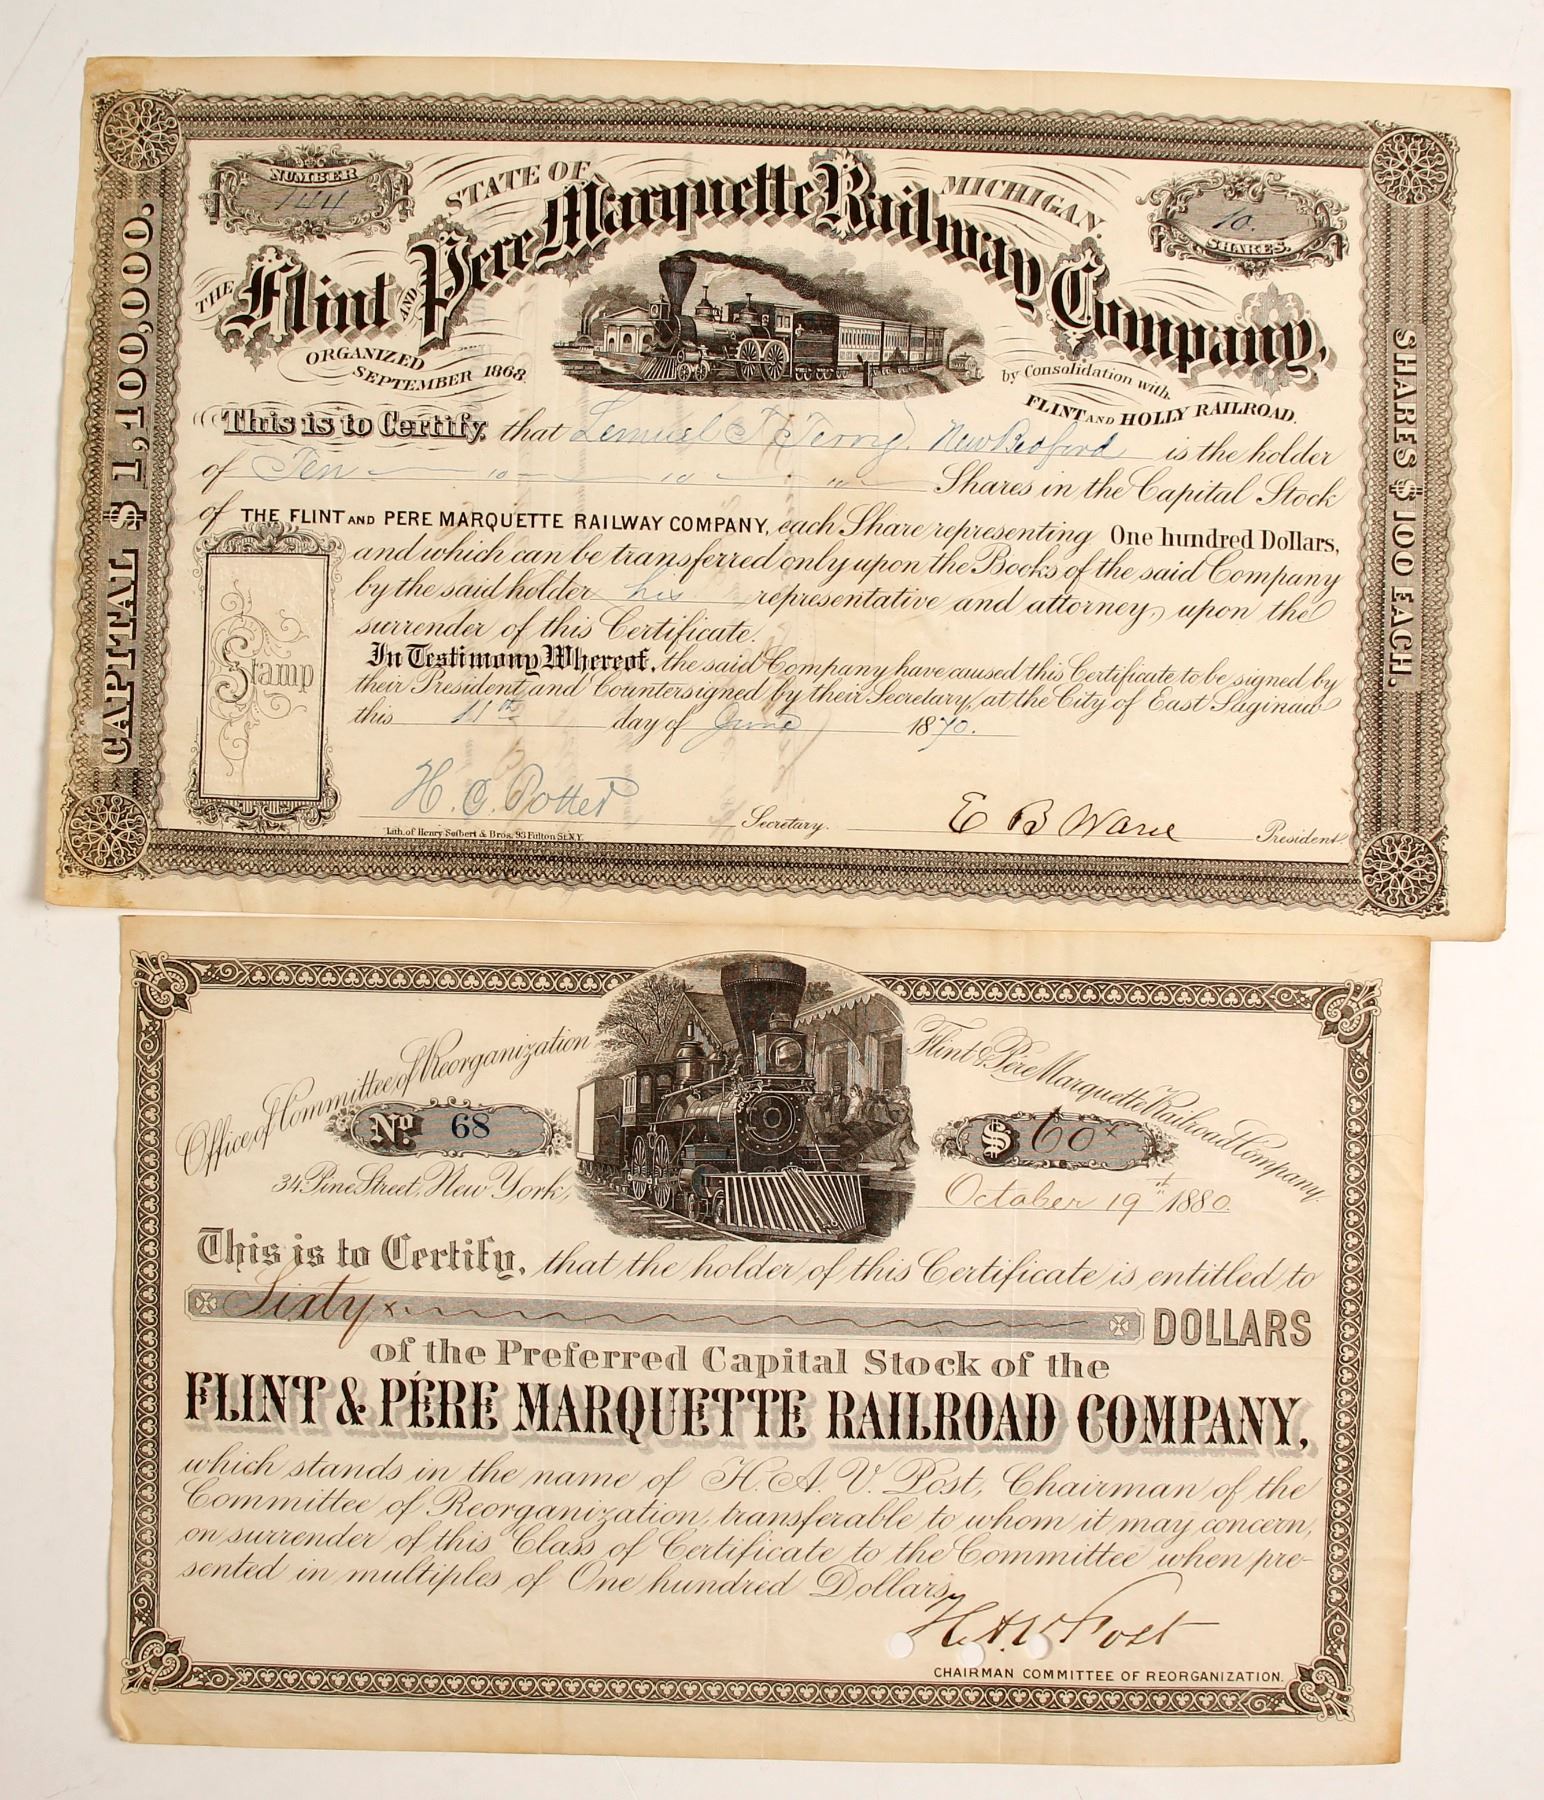 NUMBER
144
STATE OF MICHIGAN.
10.
SHARES.
THE Flint AND Pere Marquette Railway Company,
ORGANIZED
SEPTEMBER 1868
by Consolidation with
FLINT AND HOLLY RAILROAD.
CAPITAL $1,100,000.
SHARES $100 EACH.
This is to Certify, that Lemuel T. Terry, New Bedford is the holder
of Ten Shares in the Capital Stock
of THE FLINT AND PERE MARQUETTE RAILWAY COMPANY, each Share representing One hundred Dollars,
and which can be transferred only upon the Books of the said Company
by the said holder his representative and attorney, upon the
surrender of this Certificate.
Stamp
In Testimony Whereof, the said Company have caused this Certificate to be signed by
their President and Countersigned by their Secretary, at the City of East Saginaw
this 11th day of June 1870.
H. C. Potter Secretary. E B Ward President
Lith. of Henry Seibert & Bros. 93 Fulton St. N.Y.
Office of Committee of Reorganization
Flint & Pére Marquette Railroad Company.
No. 68
$ 60
34 Pine Street, New York,
October 19th 1880.
This is to Certify, that the holder of this Certificate is entitled to
Sixty DOLLARS
of the Preferred Capital Stock of the
FLINT & PÉRE MARQUETTE RAILROAD COMPANY,
which stands in the name of H. A. V. Post, Chairman of the
Committee of Reorganization, transferable to whom it may concern,
on surrender of this Class of Certificate to the Committee when pre-
sented in multiples of One hundred Dollars.
H. A. V. Post
CHAIRMAN COMMITTEE OF REORGANIZATION.